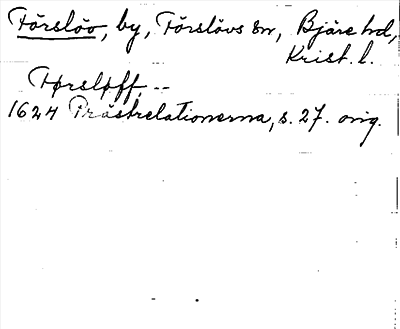 Förslöv, by, Förslövs sn, Bjäre hd,
Krist. l.
Førsløff --
1624 Prästrelationerna, s. 27. orig.